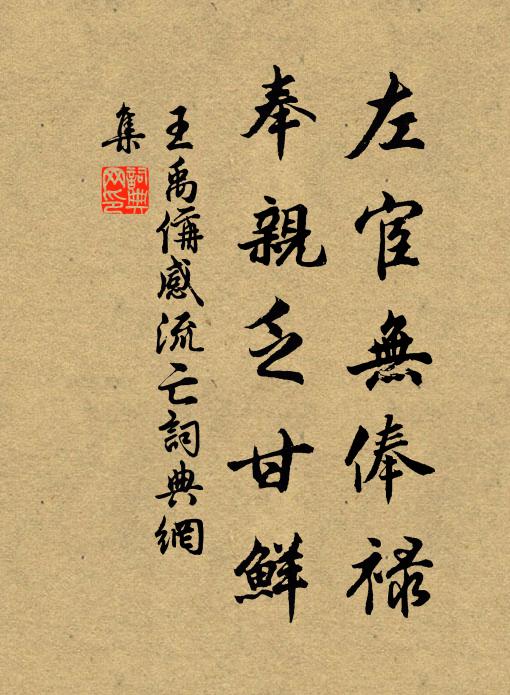 左宦無俸禄
奉親乏甘鮮
王禹偁感流亡詞典網
集
詞典
网印